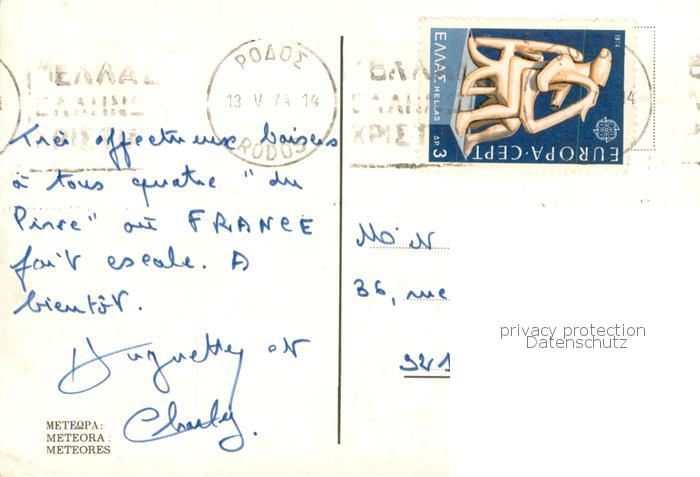 ΡΟΔΟΣ
13 V 74 14
RODOS
ΕΛΛΑΣ
ΕΛΛΑΣ HELLAS
ΔΡ 3
1974
EUROPA·CEPT
14
Très affectueux baisers
à tous quatre "du
Pirée" où FRANCE
fait escale. A
bientôt.
Huguette et
Charly.
ΜΕΤΕΩΡΑ:
METEORA:
METEORES
36, rue
privacy protection
Datenschutz